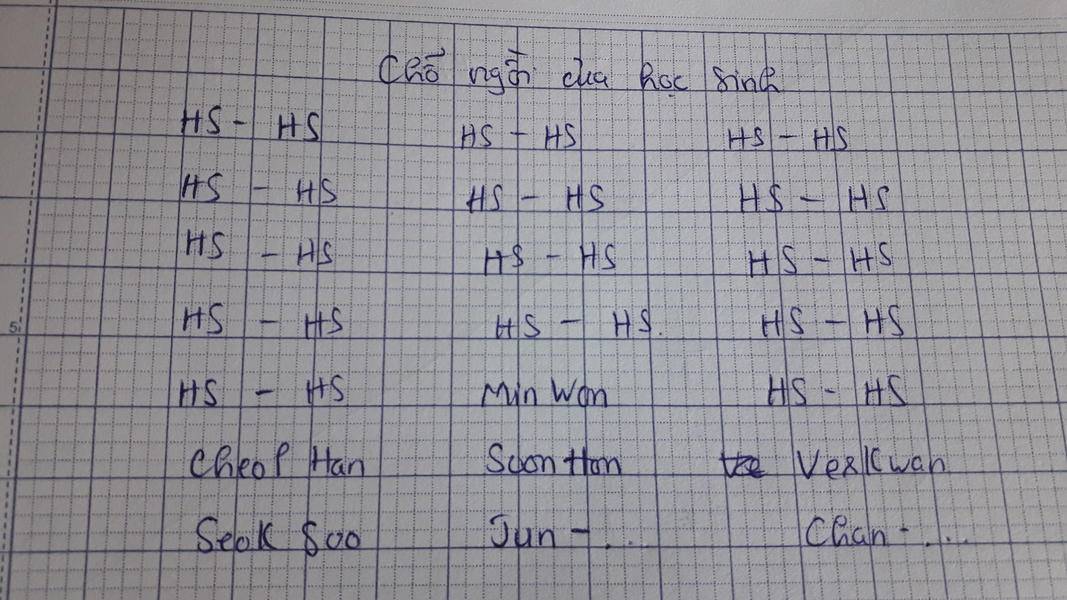 Chỗ ngồi của học sinh
HS - HS HS - HS HS - HS
HS - HS HS - HS HS - HS
HS - HS HS - HS HS - HS
HS - HS HS - HS. HS - HS
HS - HS Min Won HS - HS
Cheol Han Soon Hon VerKwan
Seok Soo Jun - ... Chan - ....
5